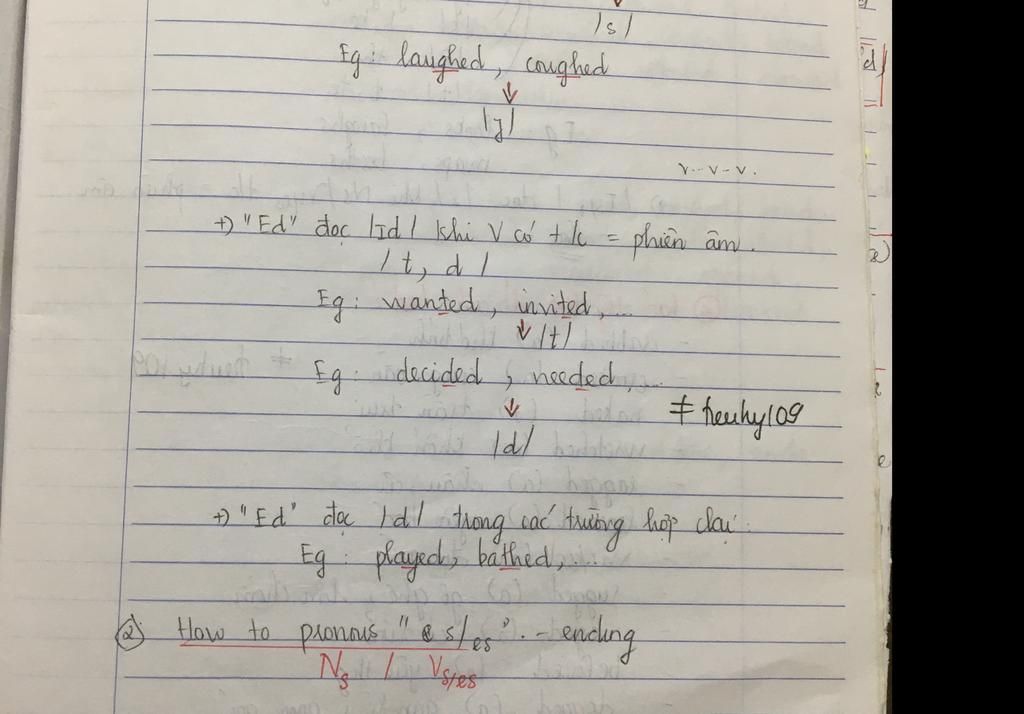 /s/
Eg : laughed, coughed
v...v...v.
+) "Ed" đọc /ɪd/ khi V có t/c = phiên âm.
/t, d/
Eg : wanted, invited,...
/t/
Eg : decided, needed,...
# heuhy109
/d/
+) "Ed" đọc /d/ trong các trường hợp còn lại.
Eg : played, bathed,...
② How to pronous " s/es". - ending
Ns / Vs/es